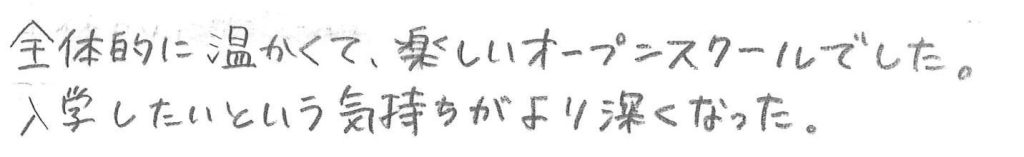 全体的に温かくて、楽しいオープンスクールでした。
入学したいという気持ちがより深くなった。